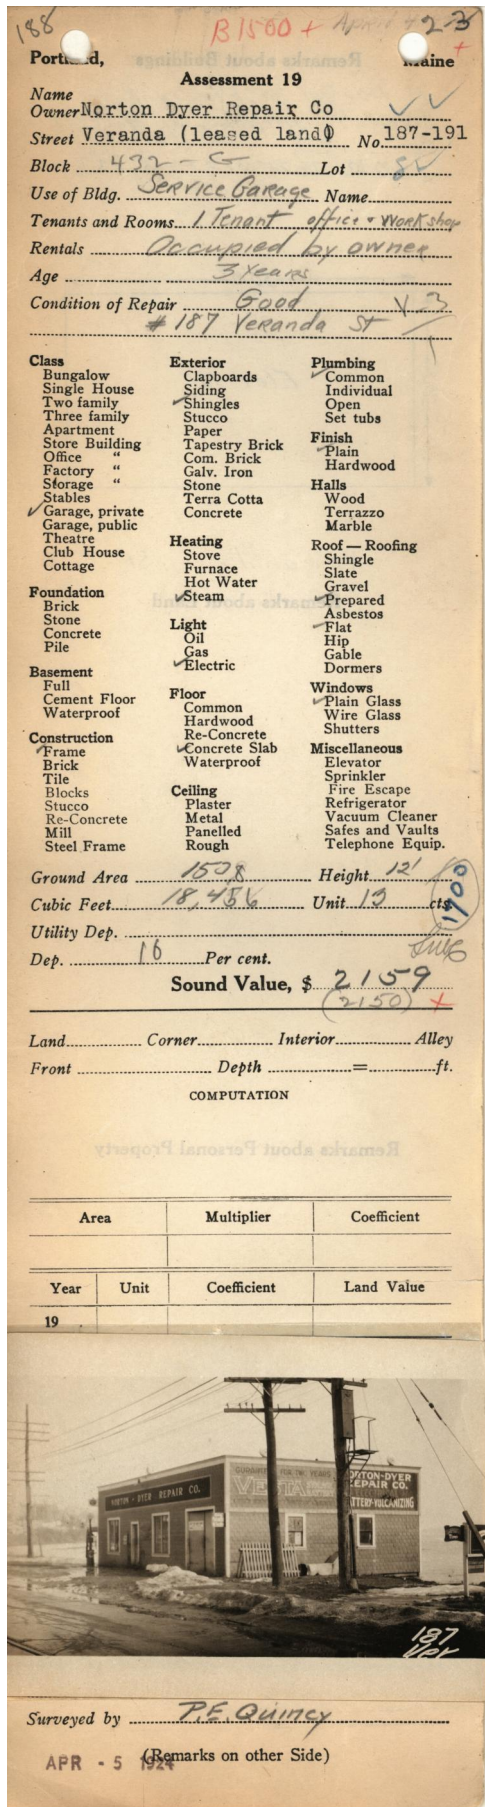 188
B 1500 + April 4 23
Portland, Maine +
Assessment 19
Name
Owner Norton Dyer Repair Co
Street Veranda (leased land) No. 187-191
Block 432-G Lot
Use of Bldg. Service Garage Name
Tenants and Rooms 1 Tenant office + Workshop
Rentals Occupied by owner
Age 3 years
Condition of Repair Good V 3
# 187 Veranda St 1
Class
Bungalow
Single House
Two family
Three family
Apartment
Store Building
Office "
Factory "
Storage "
Stables
Garage, private
Garage, public
Theatre
Club House
Cottage
Foundation
Brick
Stone
Concrete
Pile
Basement
Full
Cement Floor
Waterproof
Construction
Frame
Brick
Tile
Blocks
Stucco
Re-Concrete
Mill
Steel Frame
Exterior
Clapboards
Siding
Shingles
Stucco
Paper
Tapestry Brick
Com. Brick
Galv. Iron
Stone
Terra Cotta
Concrete
Heating
Stove
Furnace
Hot Water
Steam
Light
Oil
Gas
Electric
Floor
Common
Hardwood
Re-Concrete
Concrete Slab
Waterproof
Ceiling
Plaster
Metal
Panelled
Rough
Plumbing
Common
Individual
Open
Set tubs
Finish
Plain
Hardwood
Halls
Wood
Terrazzo
Marble
Roof — Roofing
Shingle
Slate
Gravel
Prepared
Asbestos
Flat
Hip
Gable
Dormers
Windows
Plain Glass
Wire Glass
Shutters
Miscellaneous
Elevator
Sprinkler
Fire Escape
Refrigerator
Vacuum Cleaner
Safes and Vaults
Telephone Equip.
Ground Area 1538 Height 12'
Cubic Feet 18,456 Unit 13 cts.
1900
Utility Dep.
Dep. 10 Per cent.
Sound Value, $ 2159
(2150) +
Land Corner Interior Alley
Front Depth = ft.
COMPUTATION
Area Multiplier Coefficient
Year Unit Coefficient Land Value
19
NORTON - DYER REPAIR CO.
VESTA
NORTON-DYER
REPAIR CO.
BATTERY-VULCANIZING
187
Ver
Surveyed by P.E. Quincy
(Remarks on other Side)
APR - 5 1924